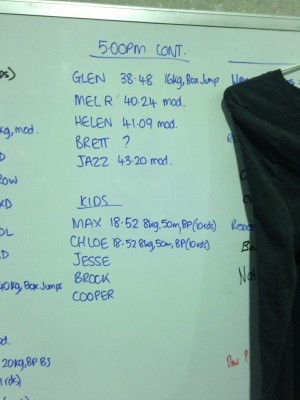 5:00PM CONT.
GLEN 38.48 16kg, Box Jump
MEL R 40.24 mod.
HELEN 41.09 mod.
BRETT ?
JAZZ 43.20 mod.
KIDS
MAX 18.52 8kg, 50m, BP (10rds)
CHLOE 18.52 8kg, 50m, BP (10rds)
JESSE
BROCK
COOPER
kg, mod.
ROW
40kg, Box Jumps
20kg, BP BJ